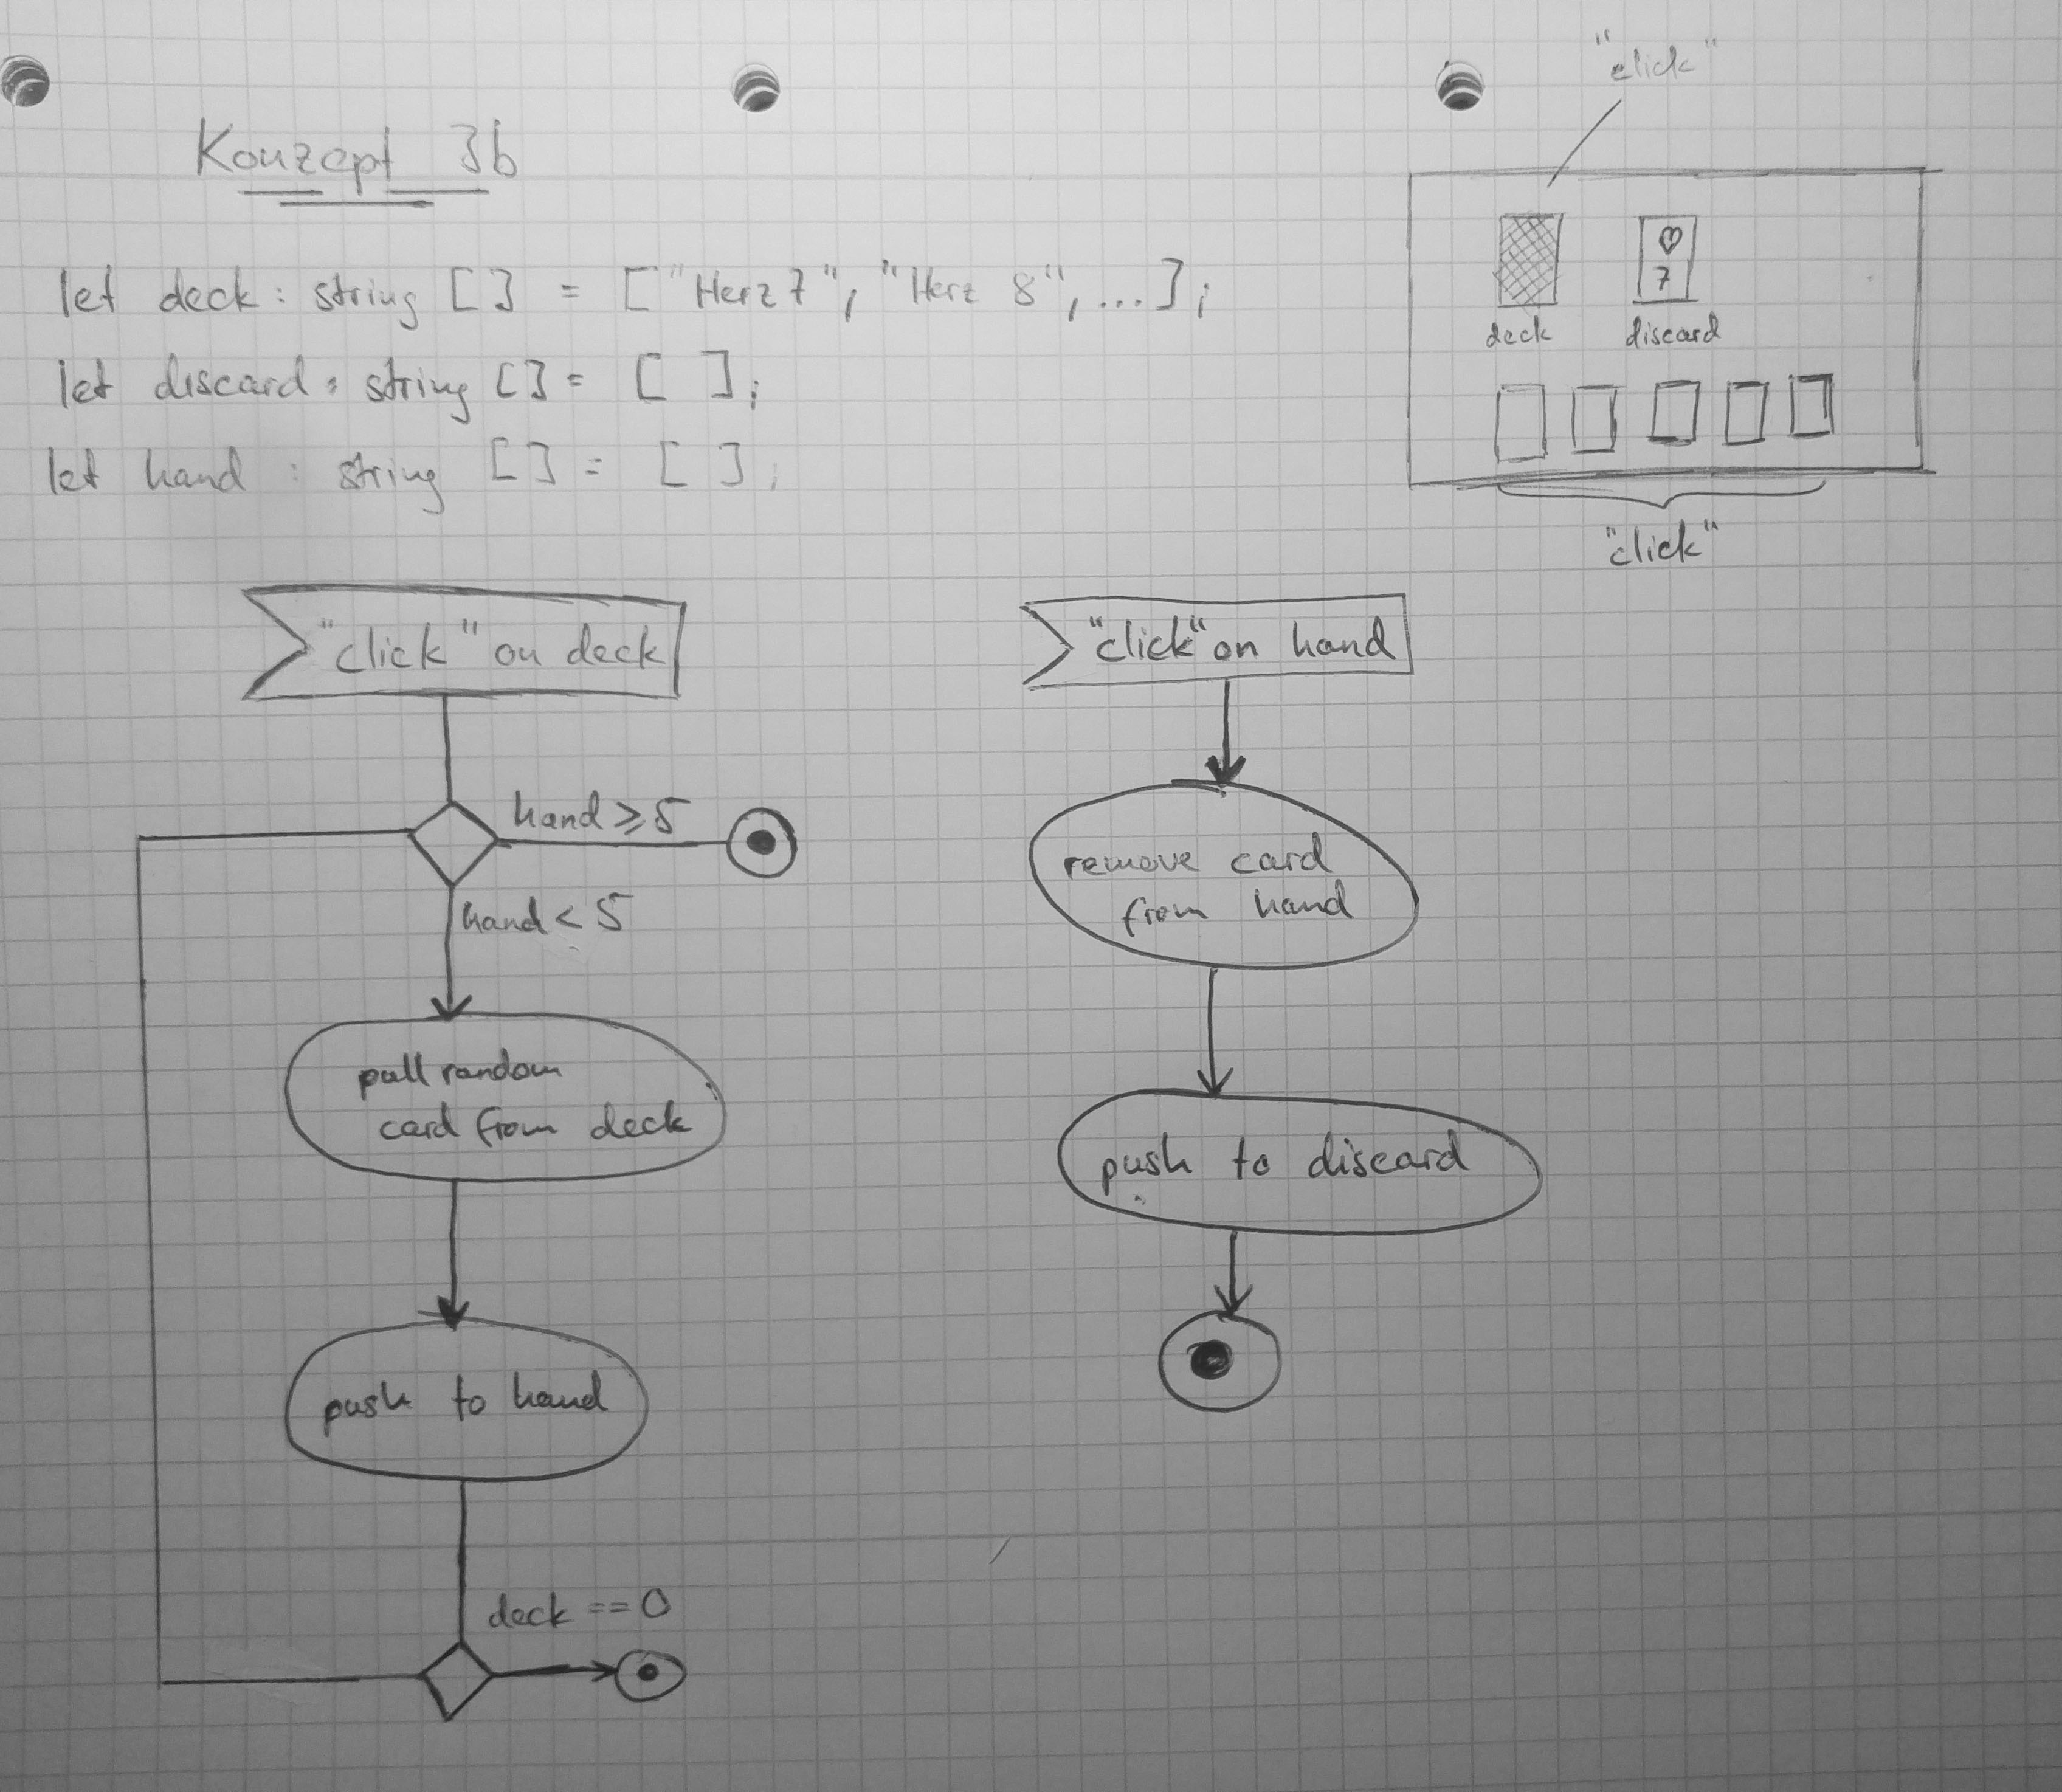 Konzept 3b
let deck: string [] = ["Herz 7", "Herz 8", ...];
let discard: string [] = [ ];
let hand : string [] = [ ];
"click"
7
deck discard
"click"
"click" on deck
hand ≥ 5
hand < 5
pull random
card from deck
push to hand
deck == 0
"click" on hand
remove card
from hand
push to discard